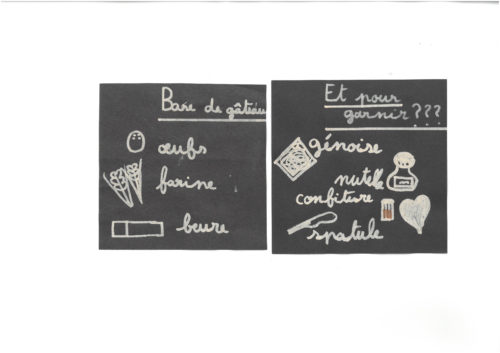 Base de gâteau
œufs
farine
beure
Et pour
garnir ???
génoise
nutella
confiture
spatule